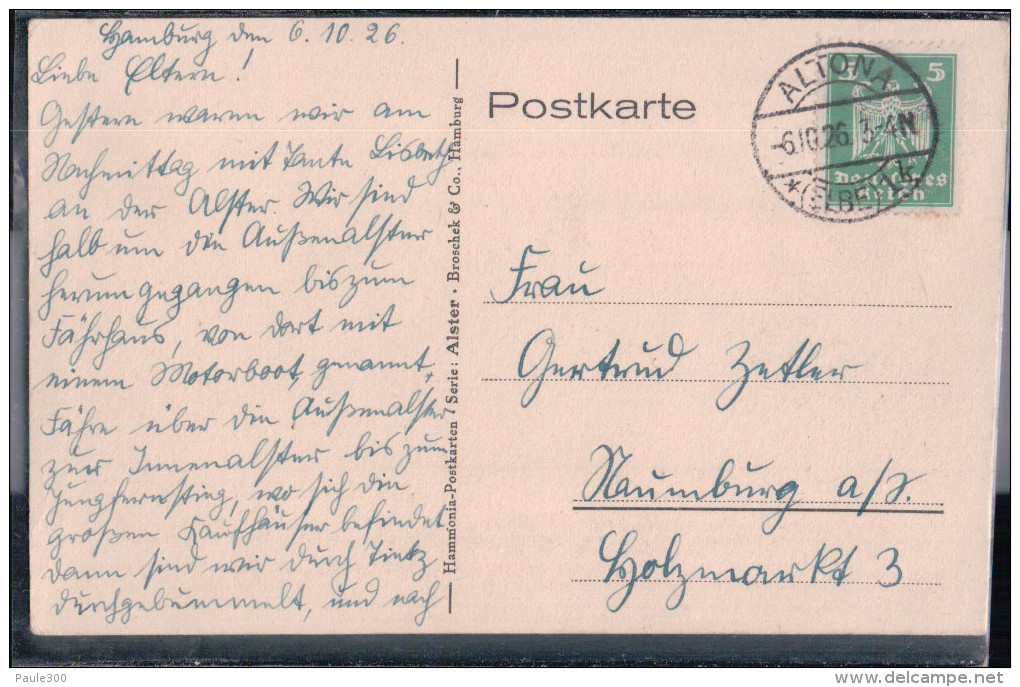 Hamburg den 6.10.26.
Liebe Eltern!
Gestern waren wir am
Nachmittag mit Tante Lisbeth
an der Alster. Wir sind
halb um die Außenalster
herum gegangen bis zum
Fährhaus, von dort mit
einem Motorboot, genannt
Fähre über die Außenalster
zur Innenalster bis zum
Jungfernstieg, wo sich die
großen Kaufhäuser befindet.
Dann sind wir durch Tietz
durchgebummelt, und nach
Hammonia-Postkarten / Serie: Alster · Broschek & Co., Hamburg
Postkarte
ALTONA
-6.10.26. 3-4N
*(ELBE)1k
5
Deutsches
Reich
Frau
Gertrud Zetler
Naumburg a/S.
Holzmarkt 3
Paule300